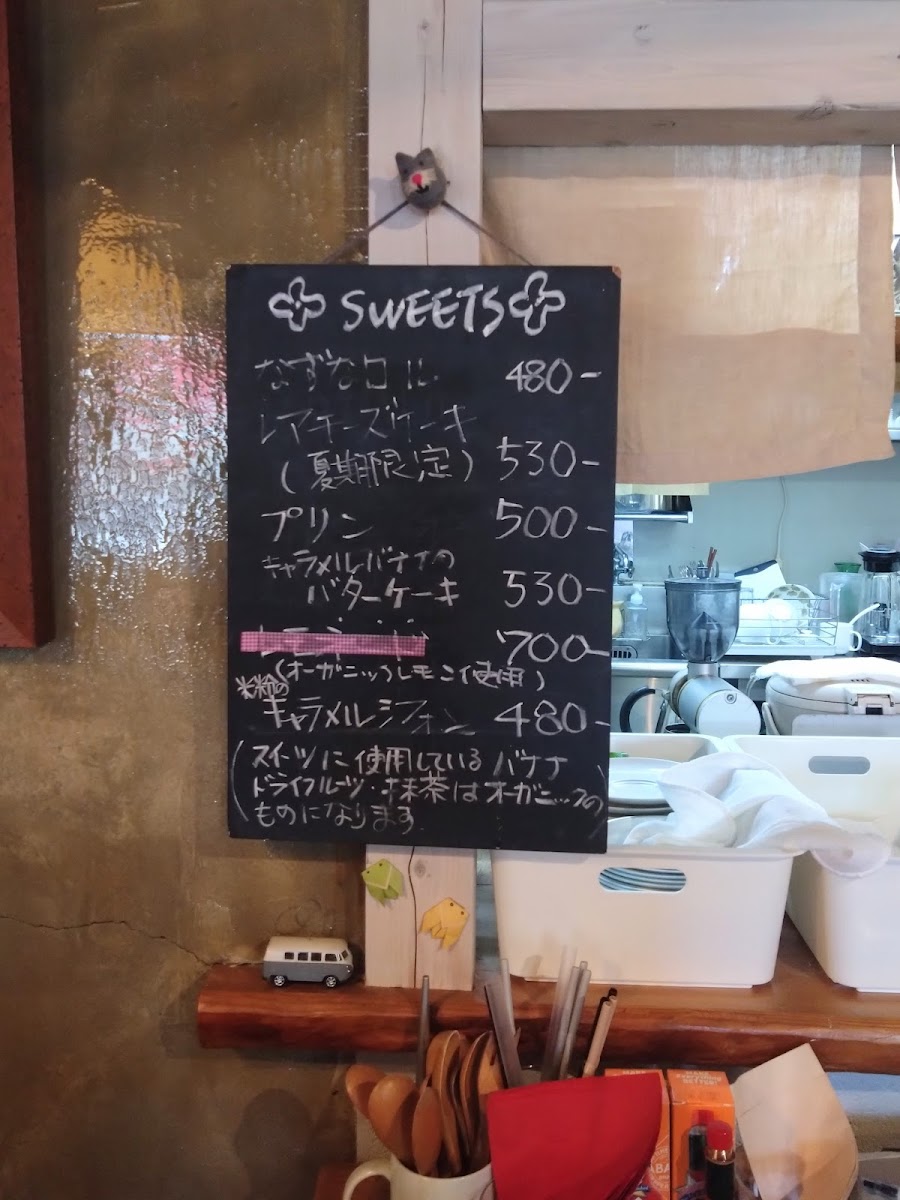 SWEETS
なずなロール 480-
レアチーズケーキ
(夏期限定) 530-
プリン 500-
キャラメルバナナの
バターケーキ 530-
700-
(オーガニックレモン使用)
米粉の
キャラメルシフォン 480-
(スイーツに使用しているバナナ
ドライフルーツ・抹茶はオーガニックの
ものになります)